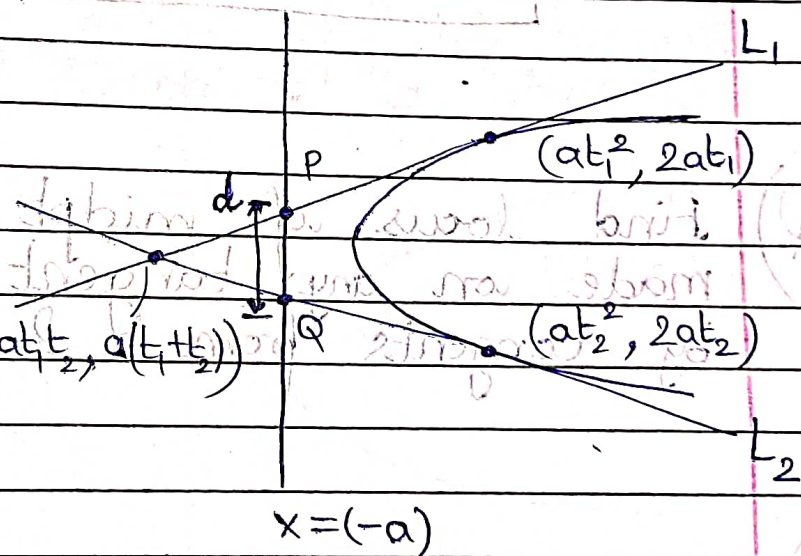 L₁
P
(at₁², 2at₁)
d
at₁t₂, a(t₁+t₂))
Q
(at₂², 2at₂)
L₂
x=(-a)